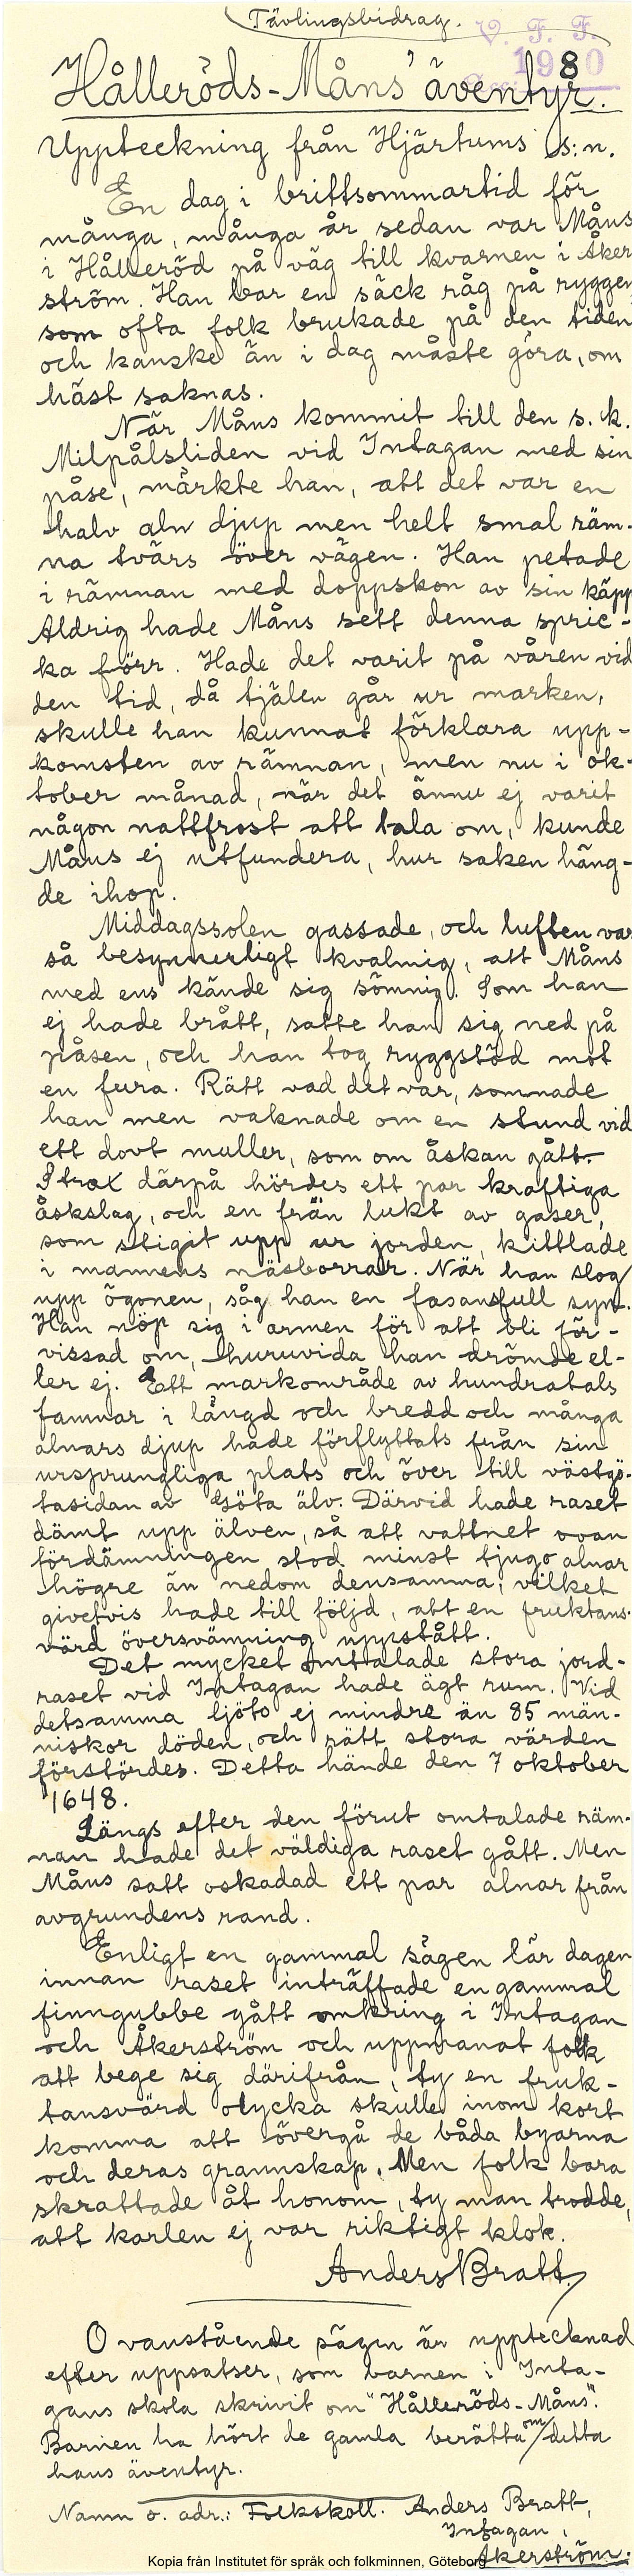 Tävlingsbidrag.
V. F. F.
1980
Hålleröds-Måns' äventyr.
Uppteckning från Hjärtums s:n.
En dag i brittsommartid för
många, många år sedan var Måns
i Hålleröd på väg till kvarnen i Åker
ström. Han bar en säck råg på ryggen
som ofta folk brukade på den tiden
och kanske än i dag måste göra, om
häst saknas.
När Måns kommit till den s. k.
Milpålsliden vid Intagan med sin
påse, märkte han, att det var en
halv aln djup men helt smal räm-
na tvärs över vägen. Han petade
i rämnan med doppskon av sin käpp
Aldrig hade Måns sett denna spric-
ka förr. Hade det varit på våren vid
den tid, då tjälen går ur marken,
skulle han kunnat förklara upp-
komsten av rämnan, men nu i ok-
tober månad, när det ännu ej varit
någon nattfrost att tala om, kunde
Måns ej utfundera, hur saken häng-
de ihop.
Middagssolen gassade, och luften var
så besynnerligt kvalmig, att Måns
med ens kände sig sömnig. Som han
ej hade brått, satte han sig ned på
påsen, och han tog ryggstöd mot
en fura. Rätt vad det var, somnade
han men vaknade om en stund vid
ett dovt muller, som om åskan gått.
Strax därpå hördes ett par kraftiga
åskslag, och en frän lukt av gaser,
som stigit upp ur jorden, kittlade
i mannens näsborrar. När han slog
upp ögonen, såg han en fasansfull syn.
Han nöp sig i armen för att bli för-
vissad om, huruvida han drömde el-
ler ej. Ett markområde av hundratals
famnar i längd och bredd och många
alnars djup hade förflyttats från sin
ursprungliga plats och över till västgö-
tasidan av Göta älv. Därvid hade raset
dämt upp älven, så att vattnet ovan
fördämningen stod minst tjugo alnar
högre än nedom densamma; vilket
givetvis hade till följd, att en fruktans-
värd översvämning uppstått.
Det mycket omtalade stora jord-
raset vid Intagan hade ägt rum. Vid
detsamma ljöto ej mindre än 85 män-
niskor döden, och rätt stora värden
förstördes. Detta hände den 7 oktober
1648.
Längs efter den förut omtalade räm-
nan hade det väldiga raset gått. Men
Måns satt oskadad ett par alnar från
avgrundens rand.
Enligt en gammal sägen lär dagen
innan raset inträffade en gammal
finngubbe gått omkring i Intagan
och Åkerström och uppmanat folk
att bege sig därifrån, ty en fruk-
tansvärd olycka skulle inom kort
komma att övergå de båda byarna
och deras grannskap. Men folk bara
skrattade åt honom, ty man trodde,
att karlen ej var riktigt klok.
Anders Bratt
Ovanstående sägen är upptecknad
efter uppsatser, som barnen i Inta-
gans skola skrivit om "Hålleröds-Måns".
Barnen ha hört de gamla berätta om detta
hans äventyr.
Namn o. adr.: Folkskoll. Anders Bratt,
Intagan,
Åkerström.
Kopia från Institutet för språk och folkminnen, Göteborg